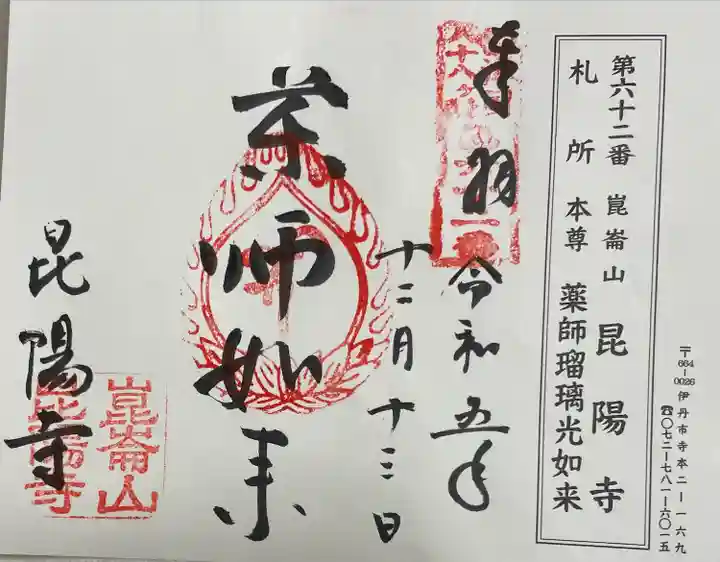 第六十二番 崑崙山 昆陽寺
札所本尊 薬師瑠璃光如来
〒664-0026 伊丹市寺本二-一六九
☎〇七二-七八一-六〇一五
奉拝
令和五年
十二月十三日
薬師如来
昆陽寺
崑崙山
昆陽寺